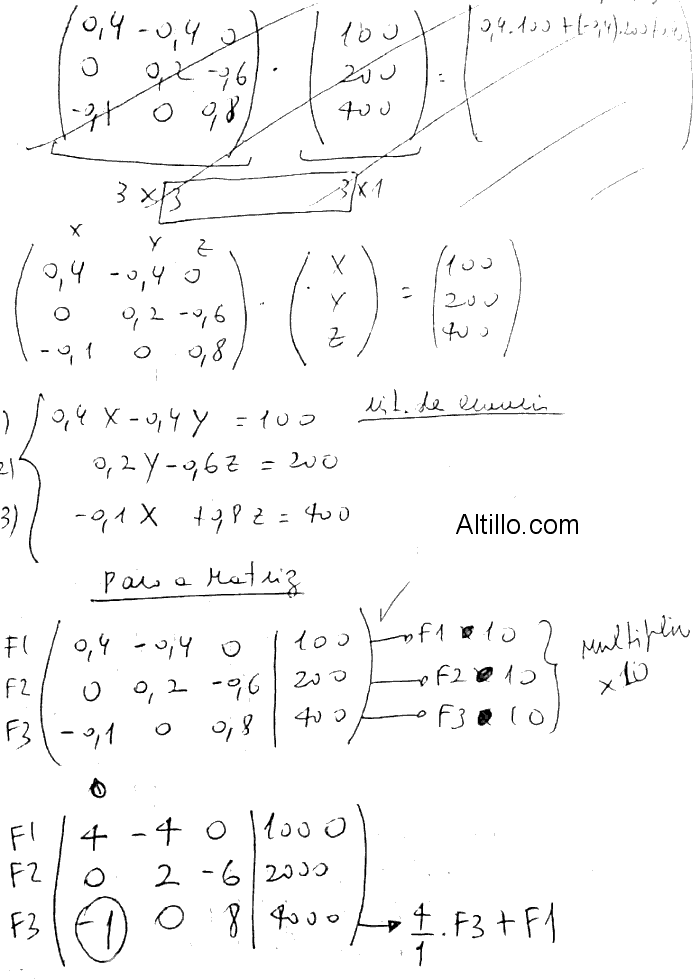 0,4 -0,4 0 100 0,4.100+(-0,4).200
0 0,2 -0,6 . 200 =
-0,1 0 0,8 400
3 x 3 3 x 1
X Y Z
0,4 -0,4 0 X 100
0 0,2 -0,6 . Y = 200
-0,1 0 0,8 Z 400
) 0,4 X - 0,4 Y = 100
2) 0,2 Y - 0,6 Z = 200
3) -0,1 X + 0,8 Z = 400
Altillo.com
Paso a Matriz
F1 0,4 -0,4 0 | 100 F1 • 10
F2 0 0,2 -0,6 | 200 F2 • 10
F3 -0,1 0 0,8 | 400 F3 • 10
Multiplico
x 10
F1 4 -4 0 | 1000
F2 0 2 -6 | 2000
F3 -1 0 8 | 4000 → 4/1 . F3 + F1